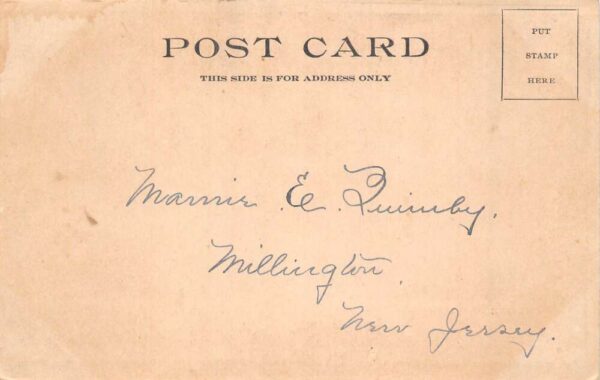 POST CARD
THIS SIDE IS FOR ADDRESS ONLY
PUT
STAMP
HERE
Mamie E. Quimby.
Millington,
New Jersey.